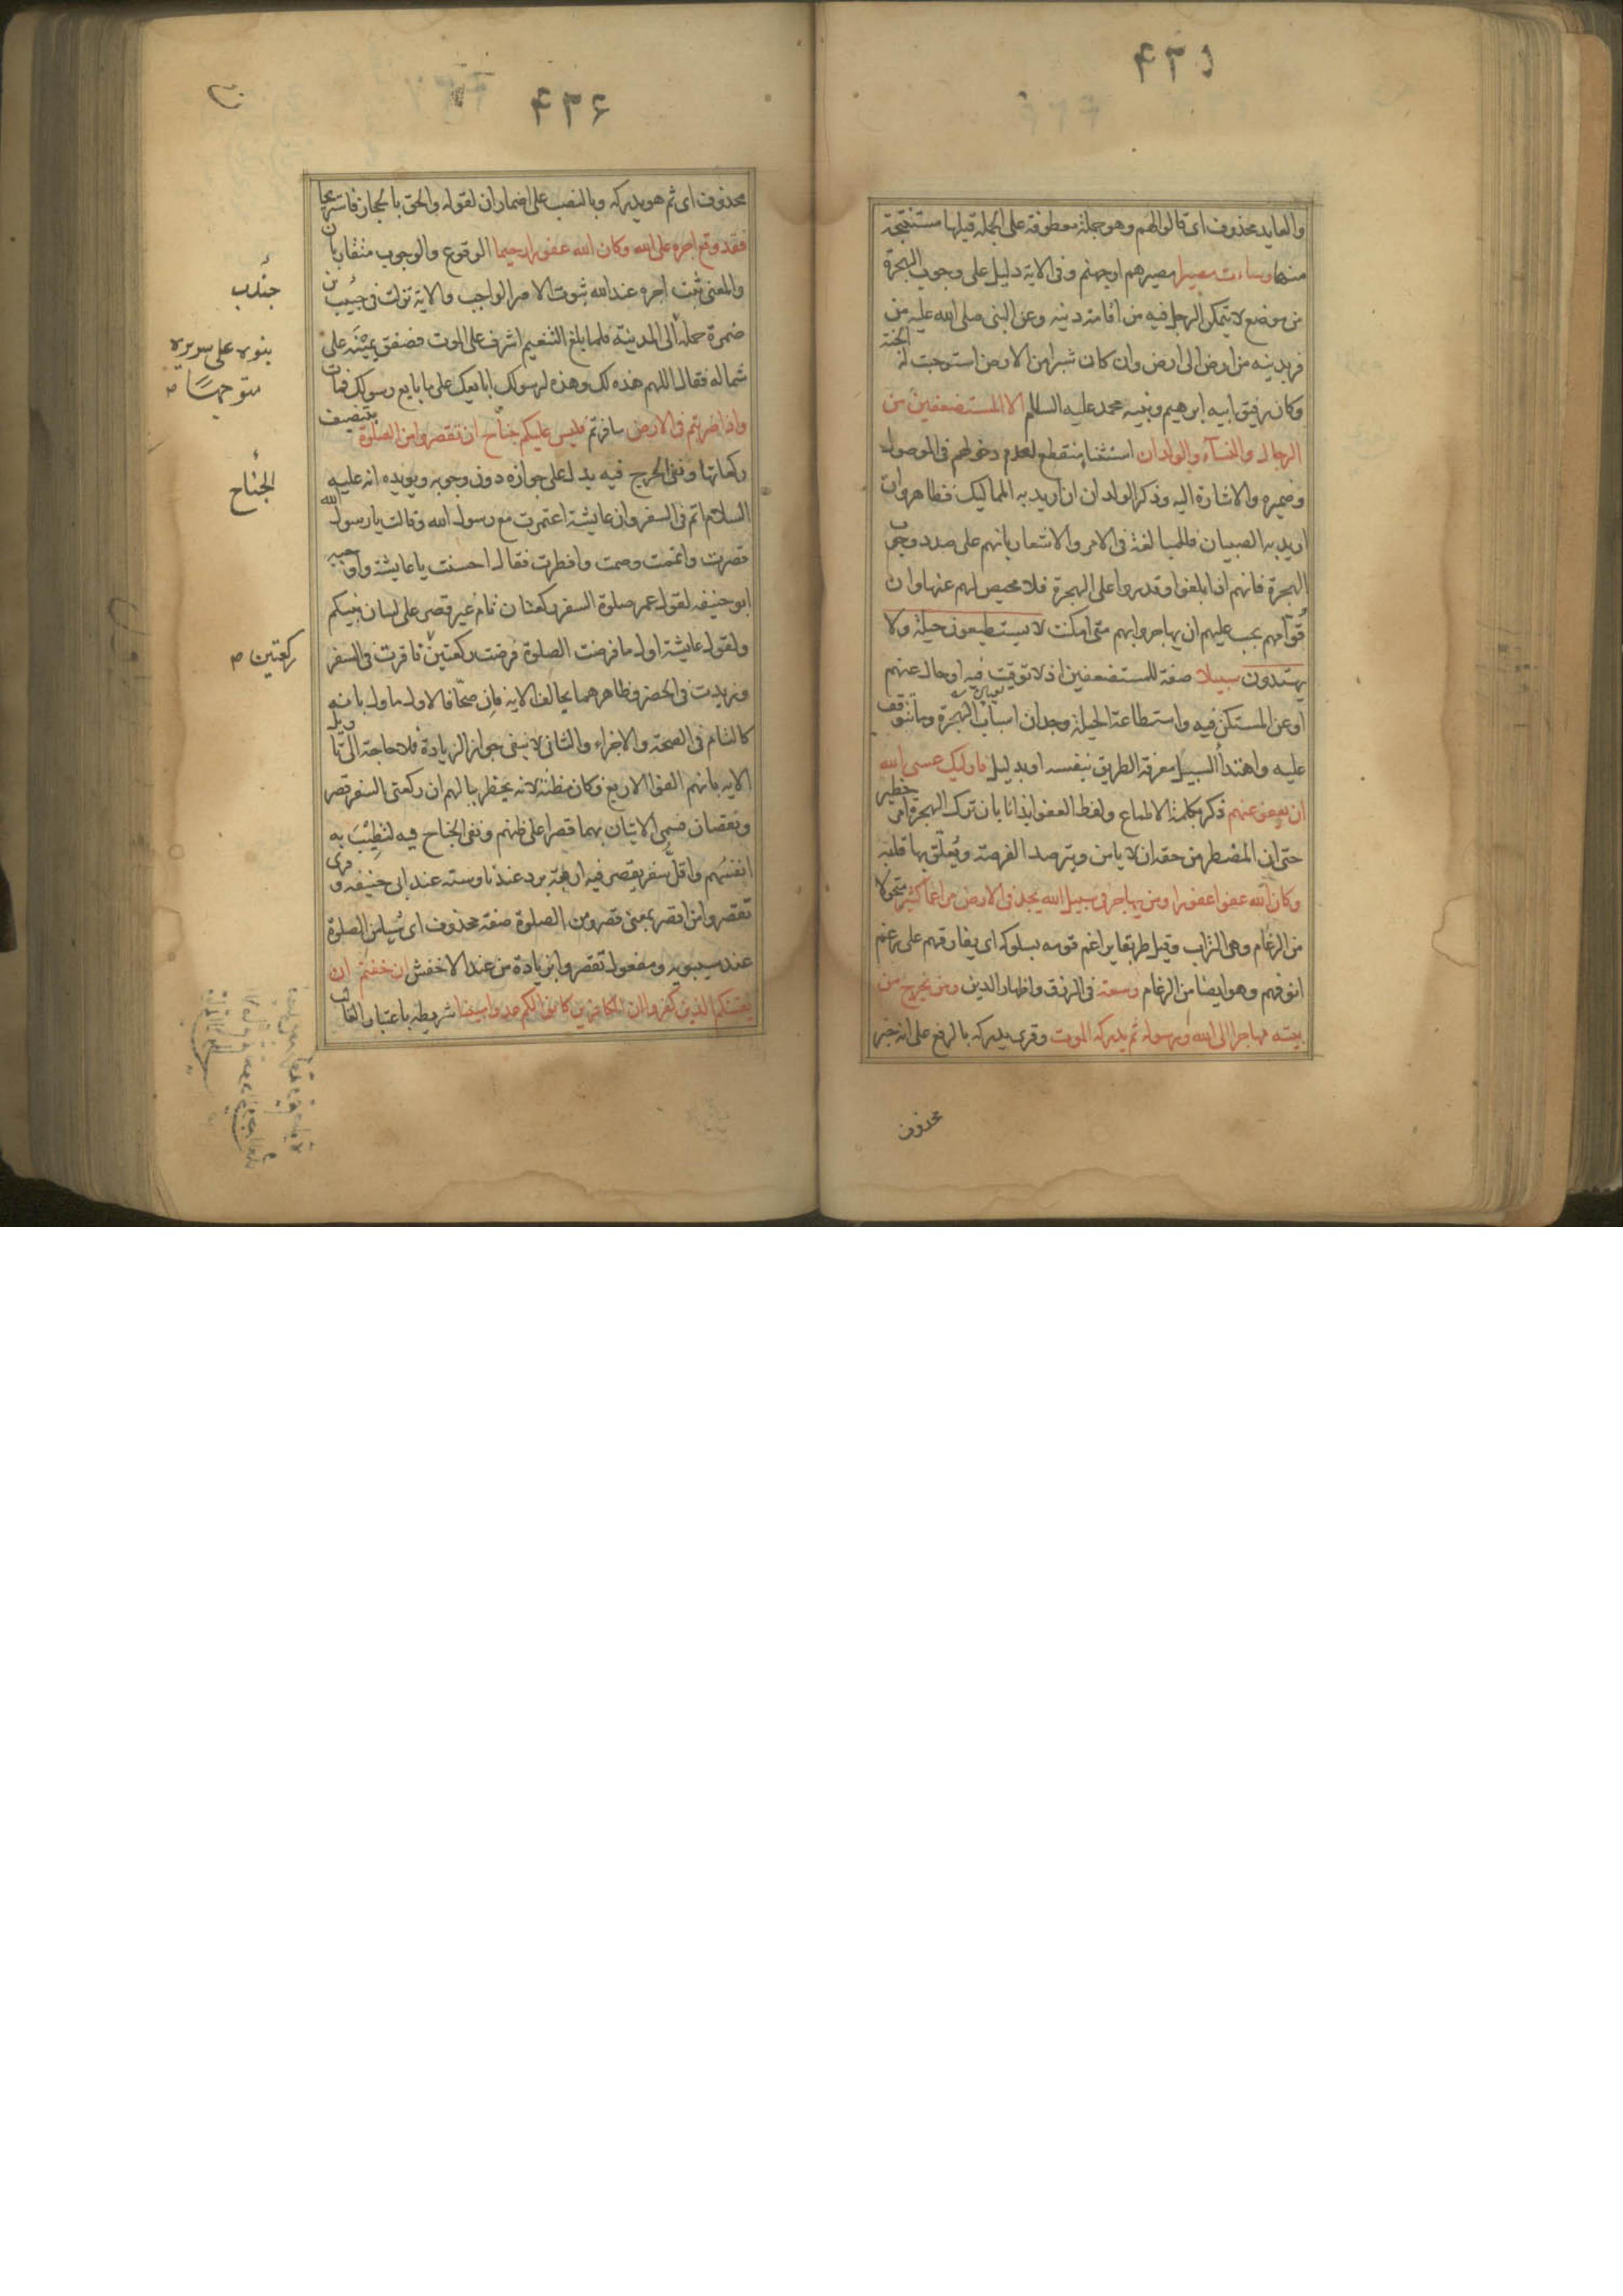 ۴۳۵
والعايد محذوف اى قالوا لهم وهو جملة معطوفة على الجملة قبلها مستنتجة
منها وساءت مصيرا مصيرهم او جهنم وفى الاية دليل على وجوب الهجرة
من موضع لا يتمكن الرجل فيه من اقامة دينه وعن النبى صلى الله عليه من
فر بدينه من ارض الى ارض وان كان شبرا من الارض استوجبت له الجنة
وكان رفيق ابيه ابرهيم ونبيه محمد عليه السلام الا المستضعفين من
الرجال والنسآء والولدان استثنا منقطع لعدم دخولهم فى الموصول
وضميره والاشارة اليه وذكر الولدان ان اريد به المماليك فظاهر وان
اريد به الصبيان فللمبالغة فى الامر والاشعار بانهم على صدد وجوب
الهجرة فانهم اذا بلغوا وقدروا على الهجرة فلا محيص لهم عنها وان
قوّامهم يجب عليهم ان يهاجروا بهم متى امكنت لا يستطيعون حيلة ولا
يهتدون سبيلا صفة للمستضعفين اذ لا توقيت فيه او حال عنهم
او عن المستكن فيه واستطاعة الحيلة وجدان اسباب الهجرة وما تتوقف
عليه واهتدأ السبيل معرفة الطريق بنفسه او بدليل فاوليك عسى الله
ان يعفو عنهم ذكر بكلمة الاطماع ولفظ العفو ايذانا بان ترك الهجرة امر خطير
حتى ان المضطر من حقه ان لا يامن ويترصد الفرصة ويُعلّق بها قلبه
وكان الله عفوا غفورا ومن يهاجر فى سبيل الله يجد فى الارض مراغما كثيرا متحولا
من الرغام وهى التراب وقيل طريقا يراغم قومه بسلوكه اى يفارقهم على رغم
انوفهم وهو ايضا من الرغام وسعة فى الرزق واظهار الدين ومن يخرج من
بيته مهاجرا الى الله ورسوله ثم يدركه الموت وقرى يدركه بالرفع على انه خبر
محذوف
۴۳۶
محذوف اى ثم هو يدركه وبالنصب على اضمار ان لقوله والحق بالحجاز فاستريحا
فقد وقع اجره على الله وكان الله غفورا رحيما الوقوع والوجوب متقاربان
والمعنى ثبت اجره عند الله ثبوت الامر الواجب والاية نزلت فى حبيب بن
ضمرة حمله الى المدينة فلما بلغ التنعيم اشرف على الموت فصفق يمينه على
شماله فقال اللهم هذه لك وهذه لرسولك ابايعك على ما بايع رسولك فمات
واذا ضربتم فى الارض سافرتم فليس عليكم جناح ان تقصروا من الصلوة بتنصيف
ركعاتها ونفى الحرج فيه يدل على جوازه دون وجوبه ويويده انه عليه
السلام اتم فى السفر وان عايشة اعتمرت مع رسول الله وقالت يا رسول الله
قصرت واتممت وصمت وافطرت فقال احسنت يا عايشة واوجبه
ابو حنيفه لقول عمر صلوة السفر ركعتان تام غير قصر على لسان نبيكم
ولقول عايشة اول ما فرضت الصلوة فرضت ركعتين فاقرت فى السفر
وزيدت فى الحضر فظاهرهما يخالف الايه فان صحّا فالاول ماول بانه
كالتام فى الصحة والاجزاء والثانى لا ينفى جواز الزيادة فلا حاجة الى تاويل
الايه بانهم الفوا الاربع وكان مظنة لانه يخطر ببالهم ان ركعتى السفر قصر
ونقصان فسمى الاتيان بهما قصرا على ظنهم ونفى الجناح فيه لتطيب به
انفسهم واقل سفر يقصر فيه اربعة برد عندنا وستة عند ابى حنيفه وقرى
تقصروا من اقصر بمعنى قصر ومن الصلوة صفة محذوف اى شيا من الصلوة
عند سيبويه ومفعول تقصروا بزيادة من عند الاخفش ان خفتم ان
يفتنكم الذين كفروا ان الكافرين كانوا لكم عدوا مبينا شريطة باعتبار الغالب
جندب
بنوه على سريره
متوجها
الجناح
ركعتين ص